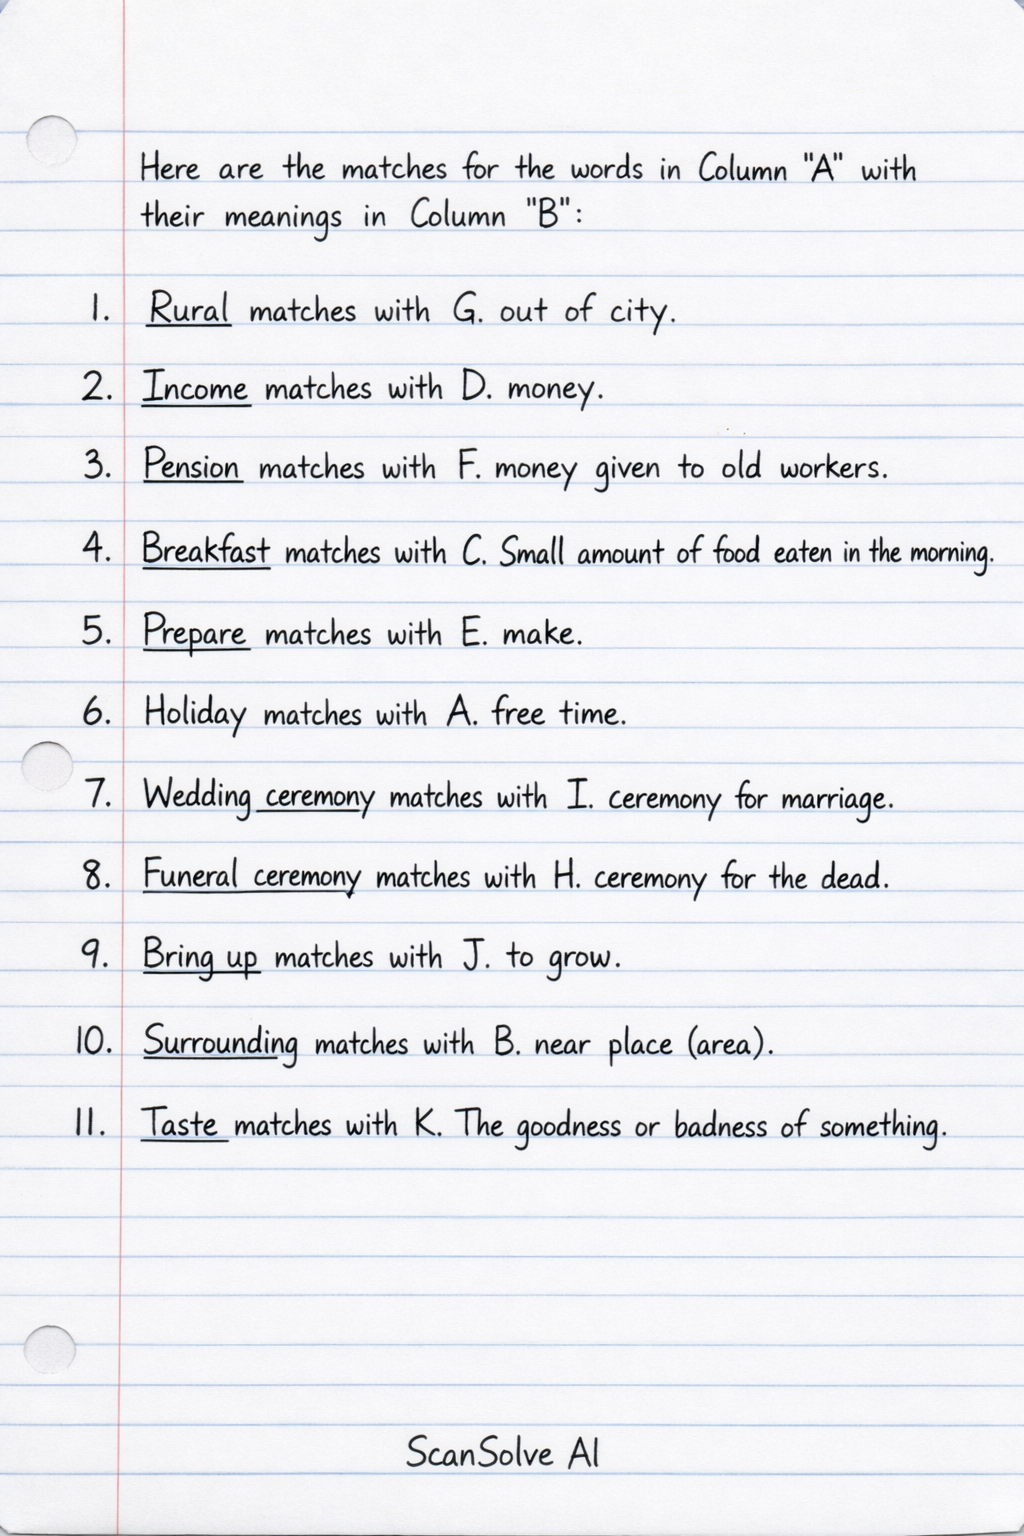 Here are the matches for the words in Column "A" with
their meanings in Column "B":
1. Rural matches with G. out of city.
2. Income matches with D. money.
3. Pension matches with F. money given to old workers.
4. Breakfast matches with C. Small amount of food eaten in the morning.
5. Prepare matches with E. make.
6. Holiday matches with A. free time.
7. Wedding ceremony matches with I. ceremony for marriage.
8. Funeral ceremony matches with H. ceremony for the dead.
9. Bring up matches with J. to grow.
10. Surrounding matches with B. near place (area).
11. Taste matches with K. The goodness or badness of something.
ScanSolve AI